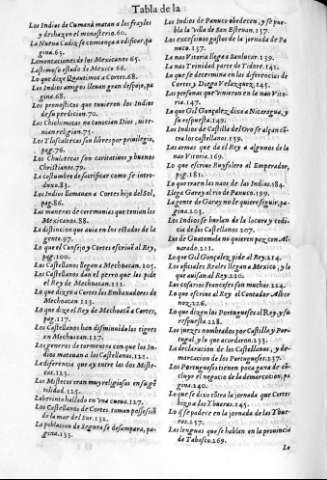 Tabla de la
Los Indios de Cumanà matan a los frayles
y deshazen el monasterio.60.
La Nueua Cadiz se comiença a edificar, pa
gina.63.
Lamentaciones de los Mexicanos 65.
Lastimoso estado de Mexico 66.
Lo que dize Quautimoc a Cortes.68.
Los Indios amigos lleuan gran despojo, pa
gina.68.
Los pronosticos que tuuieron los Indios
de su perdicion.70.
Los Chichimecas no conocian Dios, ni te-
nian religion.75.
Los Tlascaltecas son libres por priuilegio,
pag.76.
Los Chulutecas son caritatiuos y buenos
Christianos.79.
La costumbre de sacrificar como se intro-
duxo.83.
Los Indios llamauan a Cortes hijo del Sol,
pag.86.
Las maneras de ceremonias que tenian los
Mexicanos.88.
La distincion que auia en los estados de la
gente.97.
Lo que el Consejo y Cortes escriuẽ al Rey,
pag.100.
Los Castellanos llegan a Mechoacan.105.
Los Castellanos dan el perro que les pide
el Rey de Mechoacan.111.
Lo que dizen a Cortes los Embaxadores de
Mechoacan.113.
Lo que dize el Rey de Mechoacã a Cortes,
pag.117.
Los Castellanos han disminuido los tigres
en Mechoacan.127.
Los generos de tormentos con que los In-
dios matauan a los Castellanos.125.
La diferencia que ay entre los dos Miste-
cas.125.
Los Mistecas eran muy religiosos en su gẽ
tilidad.125.
Laberinto hallado en vna cueua.127.
Los Castellanos de Cortes toman possessiõ
de la mar del Sur.132.
La poblacion de Segura se desampara, pa-
gina.135.
Los Indios de Panuco obedecen, y se pue-
bla la Villa de San Esteuan.137.
Los excesiuos gastos de la jornada de Pa
nuco.137.
La nao Vitoria llega a Sanlucar.139.
La nao Trinidad parte de Tidore.141.
Lo que se determina en las diferencias de
Cortes y Diego Velazquez.145.
Las personas que vinieron en la nao Vito-
ria.147.
Lo que Gil Gonçalez dixo a Nicaragua, y
su respuesta.149.
Los Indios de Castilla del Oro se alçan cõ-
tra los castellanos.159.
Las armas que da el Rey a algunos de la
nao Vitoria.169.
Lo que escriue Ruyfalero al Emperador,
pag.181.
Lo que traen las naos de las Indias.184.
Llega Garay al rio de Panuco.199.
La gente de Garay no le quiere seguir, pa-
gina.203.
Los Indios se burlan de la locura y codi-
cia de los Castellanos 207.
Los de Guatemala no quieren paz con Al-
uarado.211.
Lo que Gil Gonçalez pide al Rey.214.
Los oficiales Reales llegan a Mexico, y lo
que auisan al Rey.220.
Los cosarios Franceses son muchos.224.
Lo que escriue al Rey el Contador Albor
noz.226.
Lo que dizen los Portugueses al Rey, y su
respuesta.228.
Los juezes nombrados por Castilla y Por-
tugal, y lo que acordaron.233.
La declaracion de los Castellanos, y de-
marcacion de los Portugueses.237.
Los Portugueses tienen poca gana de cõ-
cluyr el negocio de la demarcacion, pa
gina.240.
Lo que se dixo cerca la jornada que Cortes
hizo a las Ybueras.245.
Lo q̃ se padece en la jornada de las Ybue-
ras.257.
Las lenguas que se hablan en la prouincia
de Tabasco.269.
La